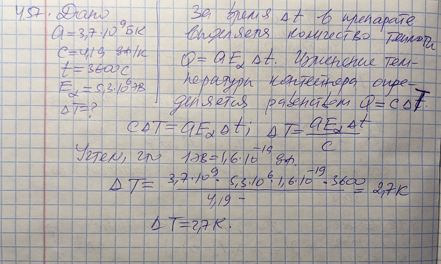 457. Дано
a = 3,7·10⁹ Бк
c = 4,19 Дж/К
t = 3600 c
E₂ = 5,3·10⁶ эВ
ΔT = ?
За время Δt в препарате
выделяется количество теплоты
Q = aE₂Δt. Изменение тем-
пературы контейнера опре-
деляется равенством Q = cΔT
cΔT = aE₂Δt; ΔT = aE₂Δt / c
Учтем, что 1эВ = 1,6·10⁻¹⁹ Дж.
ΔT = 3,7·10⁹·5,3·10⁶·1,6·10⁻¹⁹·3600 / 4,19 = 2,7 К
ΔT = 2,7 К.